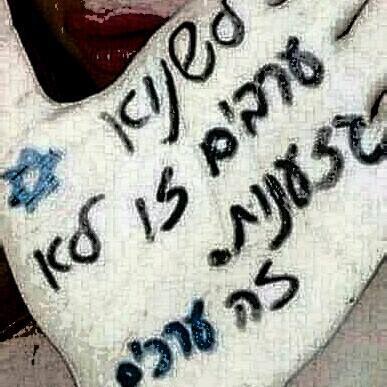 לשנוא
ערבים זו לא
גזענות.
זה ערכים